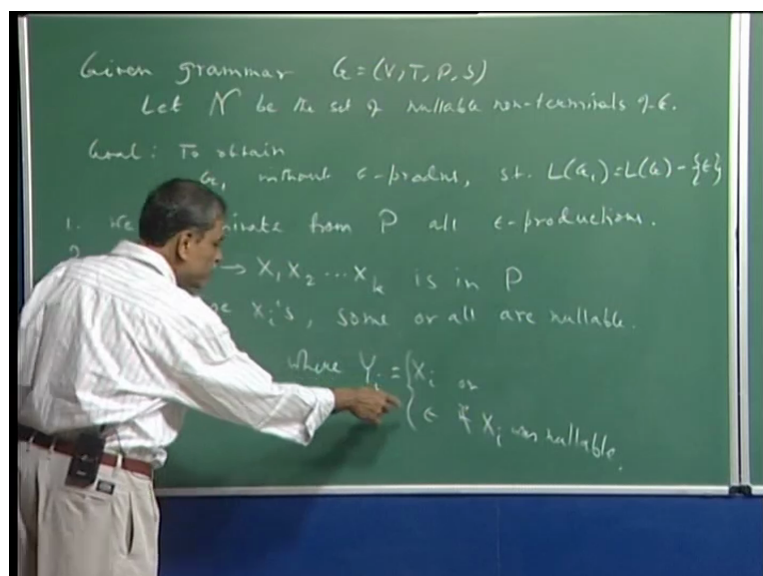 Given grammar G = (V, T, P, S)
Let N be the set of nullable non-terminals of G.
Goal: To obtain
G₁ without ϵ-prodns, s.t. L(G₁) = L(G) - {ϵ}
1. We from P all ϵ-productions.
2.
→ X₁ X₂ ... Xₖ is in P
Xᵢ's, some or all are nullable.
where Yᵢ = { Xᵢ or
ϵ if Xᵢ was nullable.